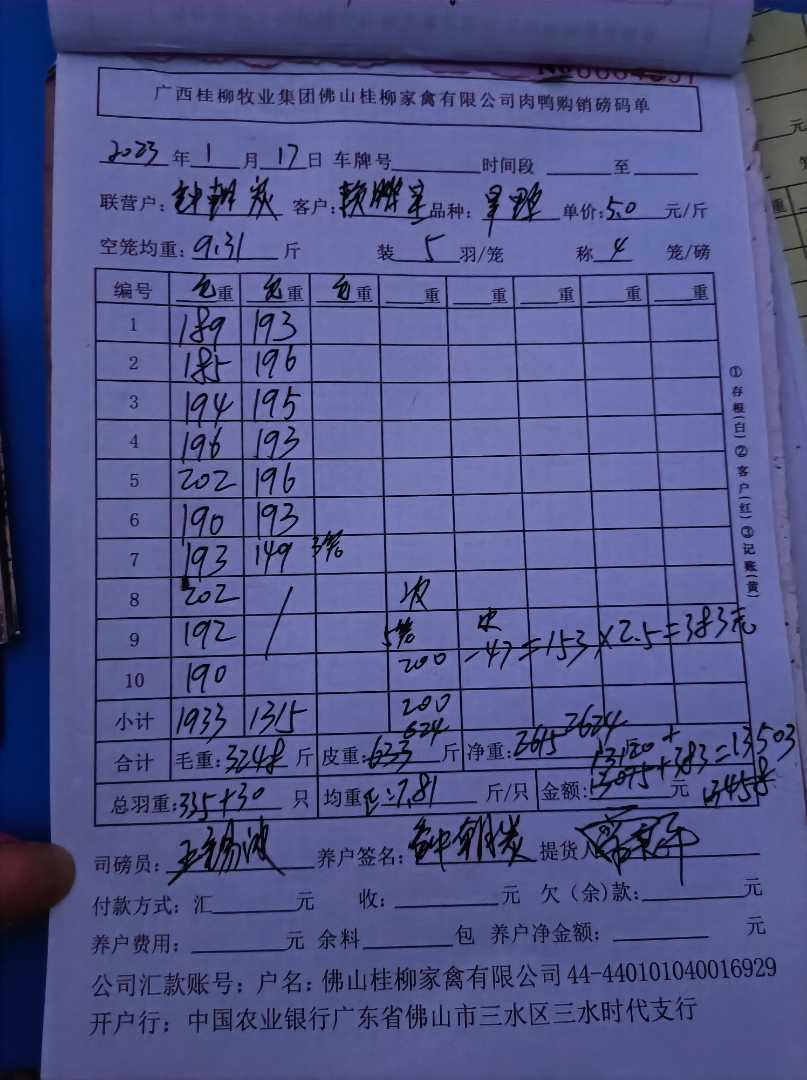 广西桂柳牧业集团佛山桂柳家禽有限公司肉鸭购销磅码单
2023年1月17日 车牌号 时间段 至
联营户: 钟朝炭 客户: 品种: 单价:5.0 元/斤
空笼均重: 9.31 斤 装 5 羽/笼 称 4 笼/磅
编号 毛重 毛重 毛重 重 重 重 重 重
1 189 193
2 185 196
3 194 195
4 196 193
5 202 196
6 190 193
7 193 149 3笼
8 202 /
9 192 5笼
10 190 200 -47=153×2.5=383元
小计 1933 1315 200
624 2624
合计 毛重:3248斤 皮重:633斤 净重:2615 13120+
总羽重:335+30只 均重:7.81斤/只 金额:13075+383=13503元
13458
司磅员: 养户签名: 钟朝炭 提货人
付款方式:汇 元 收: 元 欠(余)款: 元
养户费用: 元 余料 包 养户净金额: 元
公司汇款账号:户名:佛山桂柳家禽有限公司 44-440101040016929
开户行:中国农业银行广东省佛山市三水区三水时代支行
①存根(白)②客户(红)③记账(黄)